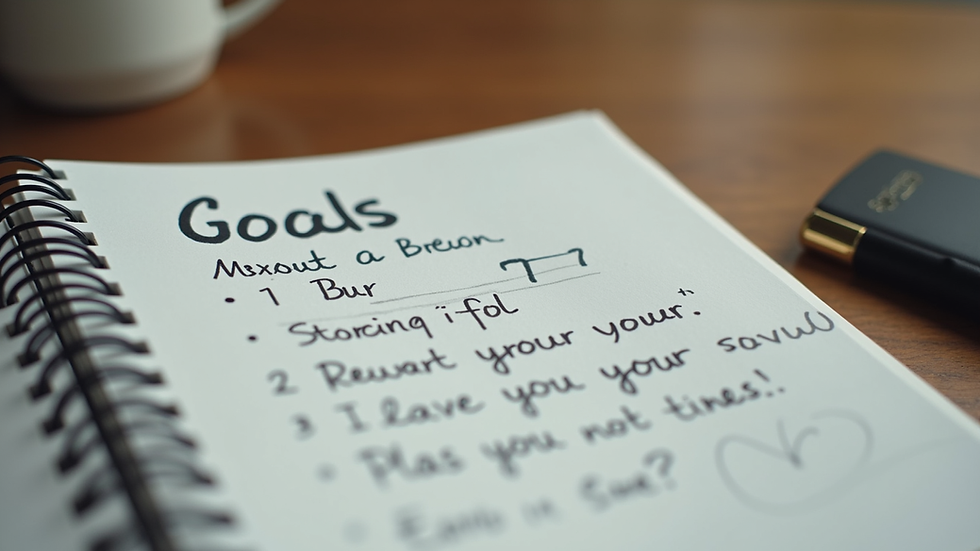 Goals
Msxout a Breion
• 1 Bur
• Storcing ifol
2 Rewart yrour your."
3 I lave you your savul
• Plas you not tines!.
in Sue?